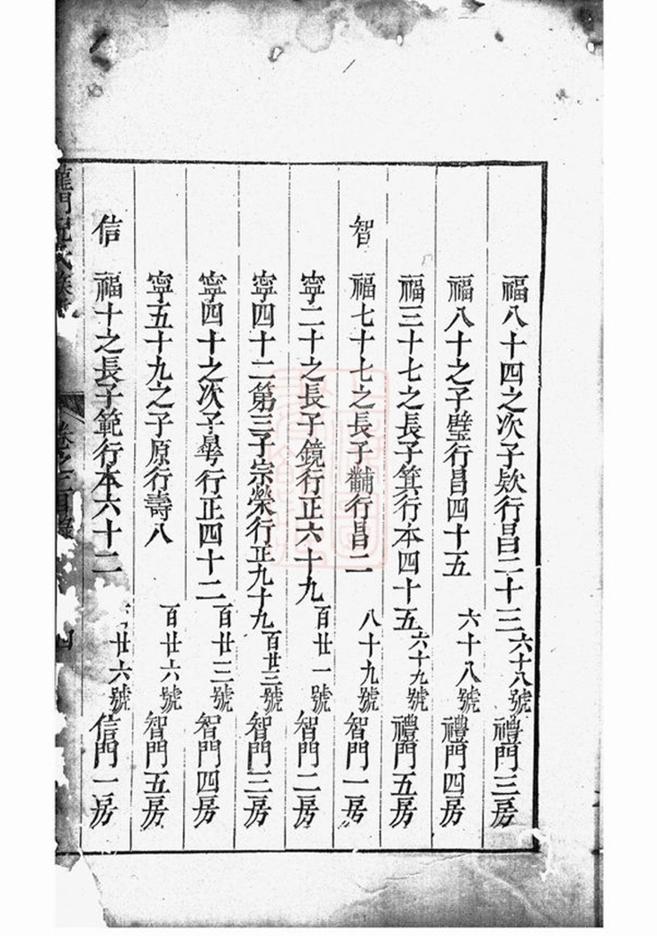 福八十四之次子欵行昌二十三 六十八號 禮門三房
福八十之子璧行昌四十五 六十八號 禮門四房
福三十七之長子箕行本四十五 六十九號 禮門五房
智 福七十七之長子黼行昌二 八十九號 智門一房
寜二十之長子鏡行正六十九 百廿一號 智門二房
寜四十二第三子宗榮行正九十九 百廿三號 智門三房
寜四十之次子行正四十二 百廿三號 智門四房
寜五十九之子原行壽八 百廿六號 智門五房
信 福十之長子範行本六十二 廿六號 信門一房
龍門 氏族 卷之三目錄 四